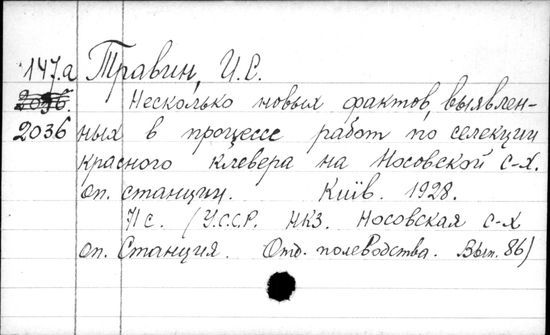 147.а Травин, И.С.
2036. Несколько новых фактов, выявлен-
2036 ных в процессе работ по селекции
красного клевера на Носовской с-х.
оп. станции. Київ. 1928.
71 с. (У.С.С.Р. НКЗ. Носовская с-х
оп. Станция. Отд. полеводства. Вып. 86)